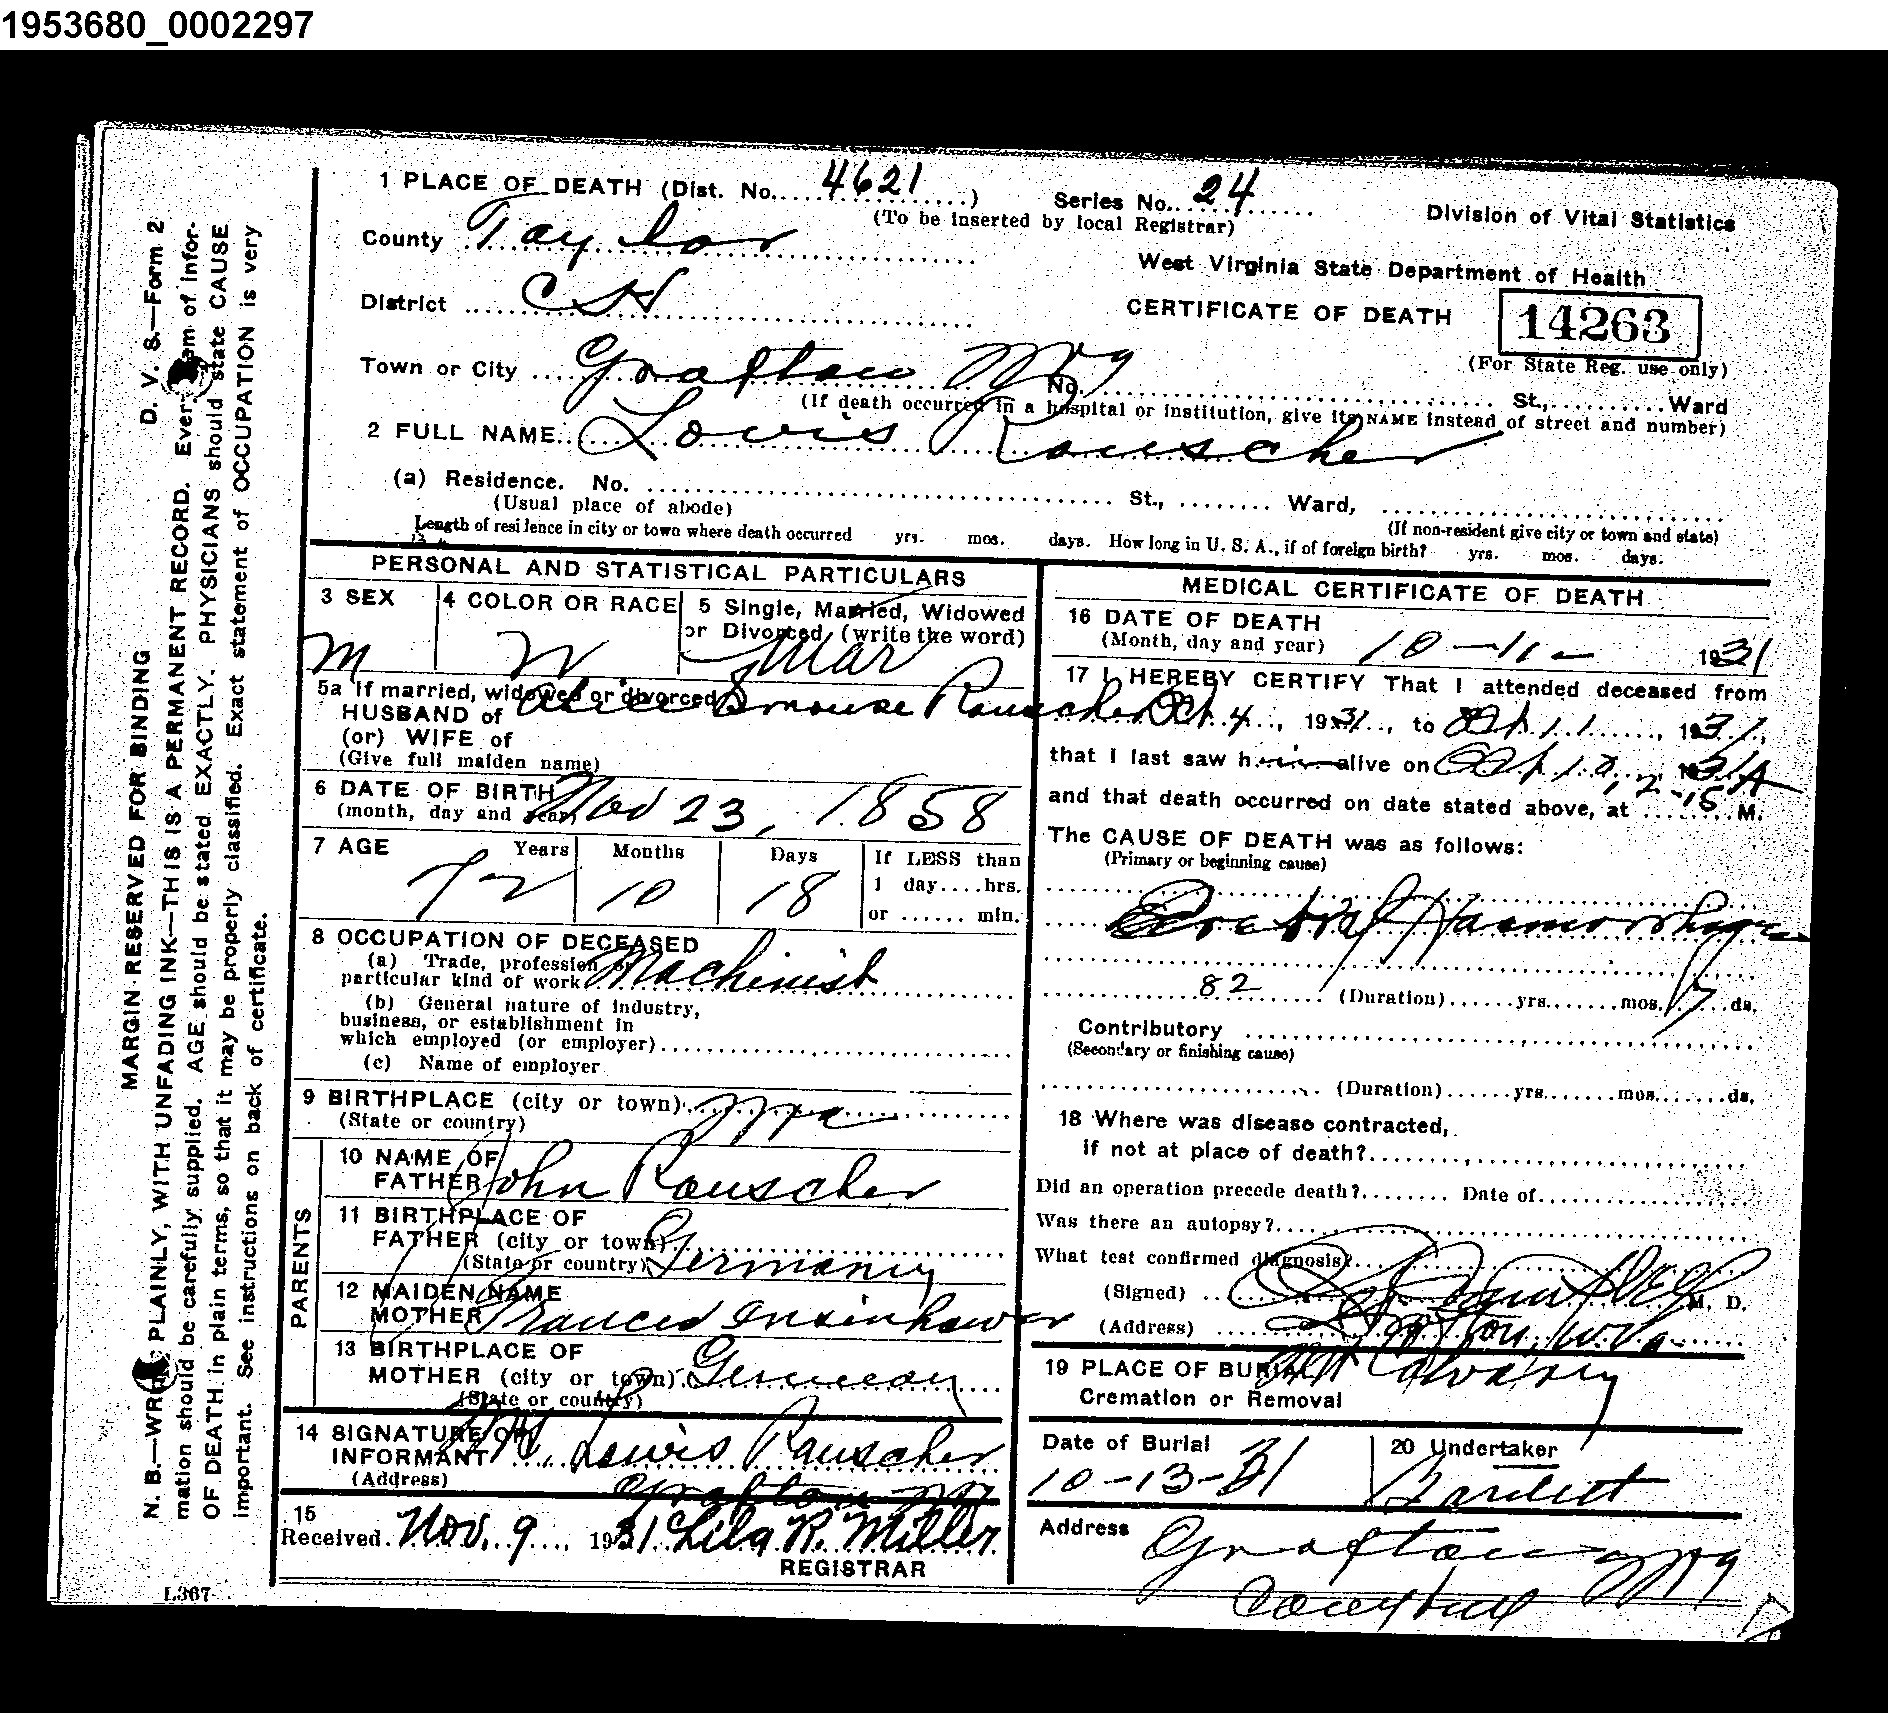 1953680_0002297
1 PLACE OF DEATH (Dist. No. 4621) Series No. 24
(To be inserted by local Registrar)
Division of Vital Statistics
County Taylor
West Virginia State Department of Health
District CH
CERTIFICATE OF DEATH 14263
(For State Reg. use only)
Town or City Grafton W Va No. St., Ward
(If death occurred in a hospital or institution, give its NAME instead of street and number)
2 FULL NAME Louis Rauscher
(a) Residence. No. St., Ward,
(Usual place of abode) (If non-resident give city or town and state)
Length of residence in city or town where death occurred yrs. mos. days. How long in U. S. A., if of foreign birth? yrs. mos. days.
PERSONAL AND STATISTICAL PARTICULARS
3 SEX 4 COLOR OR RACE 5 Single, Married, Widowed
or Divorced (write the word)
M W Mar
5a If married, widowed or divorced
HUSBAND of Alice Smouse Rauscher
(or) WIFE of
(Give full maiden name)
6 DATE OF BIRTH
(month, day and year) Nov 23, 1858
7 AGE Years Months Days If LESS than
72 10 18 1 day....hrs.
or ...... min.
8 OCCUPATION OF DECEASED
(a) Trade, profession or
particular kind of work Machinist
(b) General nature of industry,
business, or establishment in
which employed (or employer)
(c) Name of employer
9 BIRTHPLACE (city or town) W Va
(State or country)
PARENTS
10 NAME OF
FATHER John Rauscher
11 BIRTHPLACE OF
FATHER (city or town) Germany
(State or country)
12 MAIDEN NAME
MOTHER Frances Insinhower
13 BIRTHPLACE OF
MOTHER (city or town) Germany
(State or country)
14 SIGNATURE OF
INFORMANT Louis Rauscher
(Address) Grafton W Va
15
Received Nov. 9 1931 Lila R. Miller
REGISTRAR
L367
MEDICAL CERTIFICATE OF DEATH
16 DATE OF DEATH
(Month, day and year) 10-11- 1931
17 I HEREBY CERTIFY That I attended deceased from
Oct. 4, 1931, to Oct. 11, 1931,
that I last saw him alive on Oct 10, 1931
and that death occurred on date stated above, at 2-15 A M.
The CAUSE OF DEATH was as follows:
(Primary or beginning cause)
Cerebral Haemorrhage
82 (Duration) yrs. mos. 7 ds.
Contributory
(Secondary or finishing cause)
(Duration) yrs. mos. ds.
18 Where was disease contracted,
if not at place of death?
Did an operation precede death? Date of
Was there an autopsy?
What test confirmed diagnosis?
(Signed) M. D.
(Address) Grafton, W Va
19 PLACE OF BURIAL Mt Calvary
Cremation or Removal
Date of Burial 20 Undertaker
10-13-31 Bartlett
Address Grafton W Va
D. V. S.—Form 2
MARGIN RESERVED FOR BINDING
N. B.—WRITE PLAINLY, WITH UNFADING INK—THIS IS A PERMANENT RECORD. Every item of infor-
mation should be carefully supplied. AGE should be stated EXACTLY. PHYSICIANS should state CAUSE
OF DEATH in plain terms, so that it may be properly classified. Exact statement of OCCUPATION is very
important. See instructions on back of certificate.